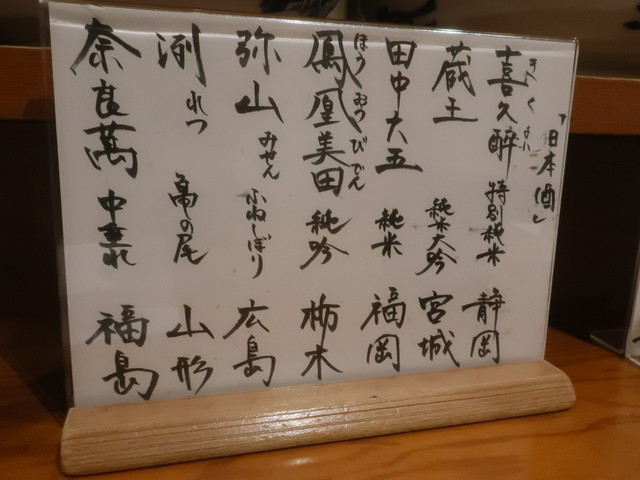 「日本酒」
喜久酔 きくよい 特別純米 静岡
蔵王 純米大吟 宮城
田中六五 純米 福岡
鳳凰美田 ほうおうびでん 純吟 栃木
弥山 みせん ふねしぼり 広島
洌 れつ 亀の尾 山形
奈良萬 中垂れ 福島